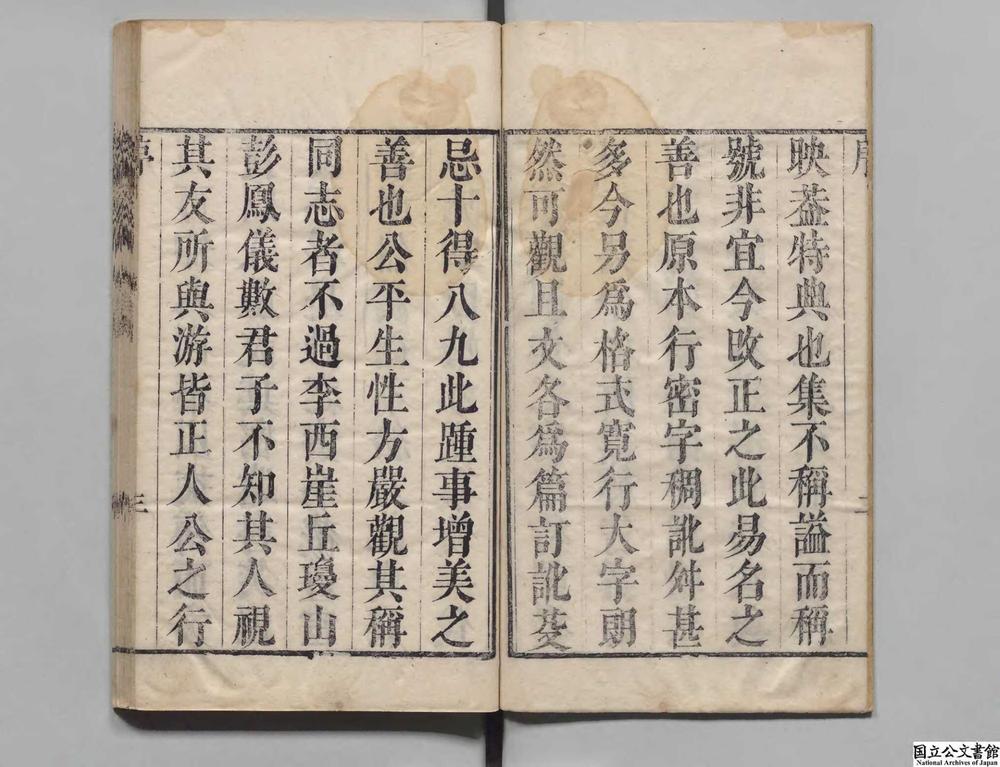 序
二
映葢特典也集不稱謚而稱
號非宜今攺正之此易名之
善也原本行密字稠訛舛甚
多今另爲格式寛行大字朗
然可觀且文各爲篇訂訛芟
忌十得八九此踵事增美之
善也公平生性方嚴觀其稱
同志者不過李西崖丘瓊山
彭鳳儀數君子不知其人視
其友所與游皆正人公之行
序
三
国立公文書館
National Archives of Japan